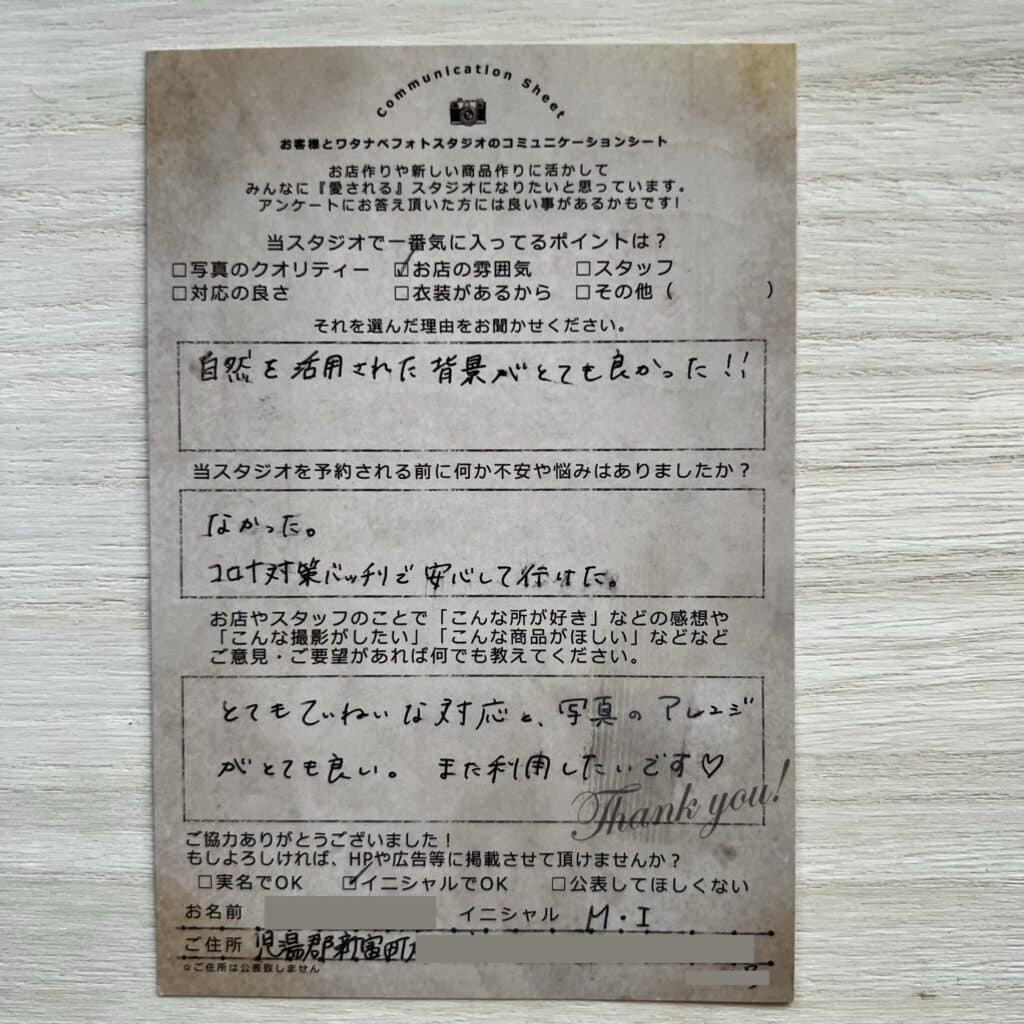 Communication Sheet
お客様とワタナベフォトスタジオのコミュニケーションシート
お店作りや新しい商品作りに活かして
みんなに『愛される』スタジオになりたいと思っています。
アンケートにお答え頂いた方には良い事があるかもです!
当スタジオで一番気に入ってるポイントは？
□写真のクオリティー ☑お店の雰囲気 □スタッフ
□対応の良さ □衣装があるから □その他（ ）
それを選んだ理由をお聞かせください。
自然を活用された背景がとても良かった!!
当スタジオを予約される前に何か不安や悩みはありましたか？
なかった。
コロナ対策バッチリで安心して行けた。
お店やスタッフのことで「こんな所が好き」などの感想や
「こんな撮影がしたい」「こんな商品がほしい」などなど
ご意見・ご要望があれば何でも教えてください。
とてもていねいな対応と、写真のアレンジ
がとても良い。 また利用したいです♡
Thank you!
ご協力ありがとうございました！
もしよろしければ、HPや広告等に掲載させて頂けませんか？
□実名でOK ☑イニシャルでOK □公表してほしくない
お名前 イニシャル M・I
ご住所 児湯郡新富町
☆ご住所は公表致しません